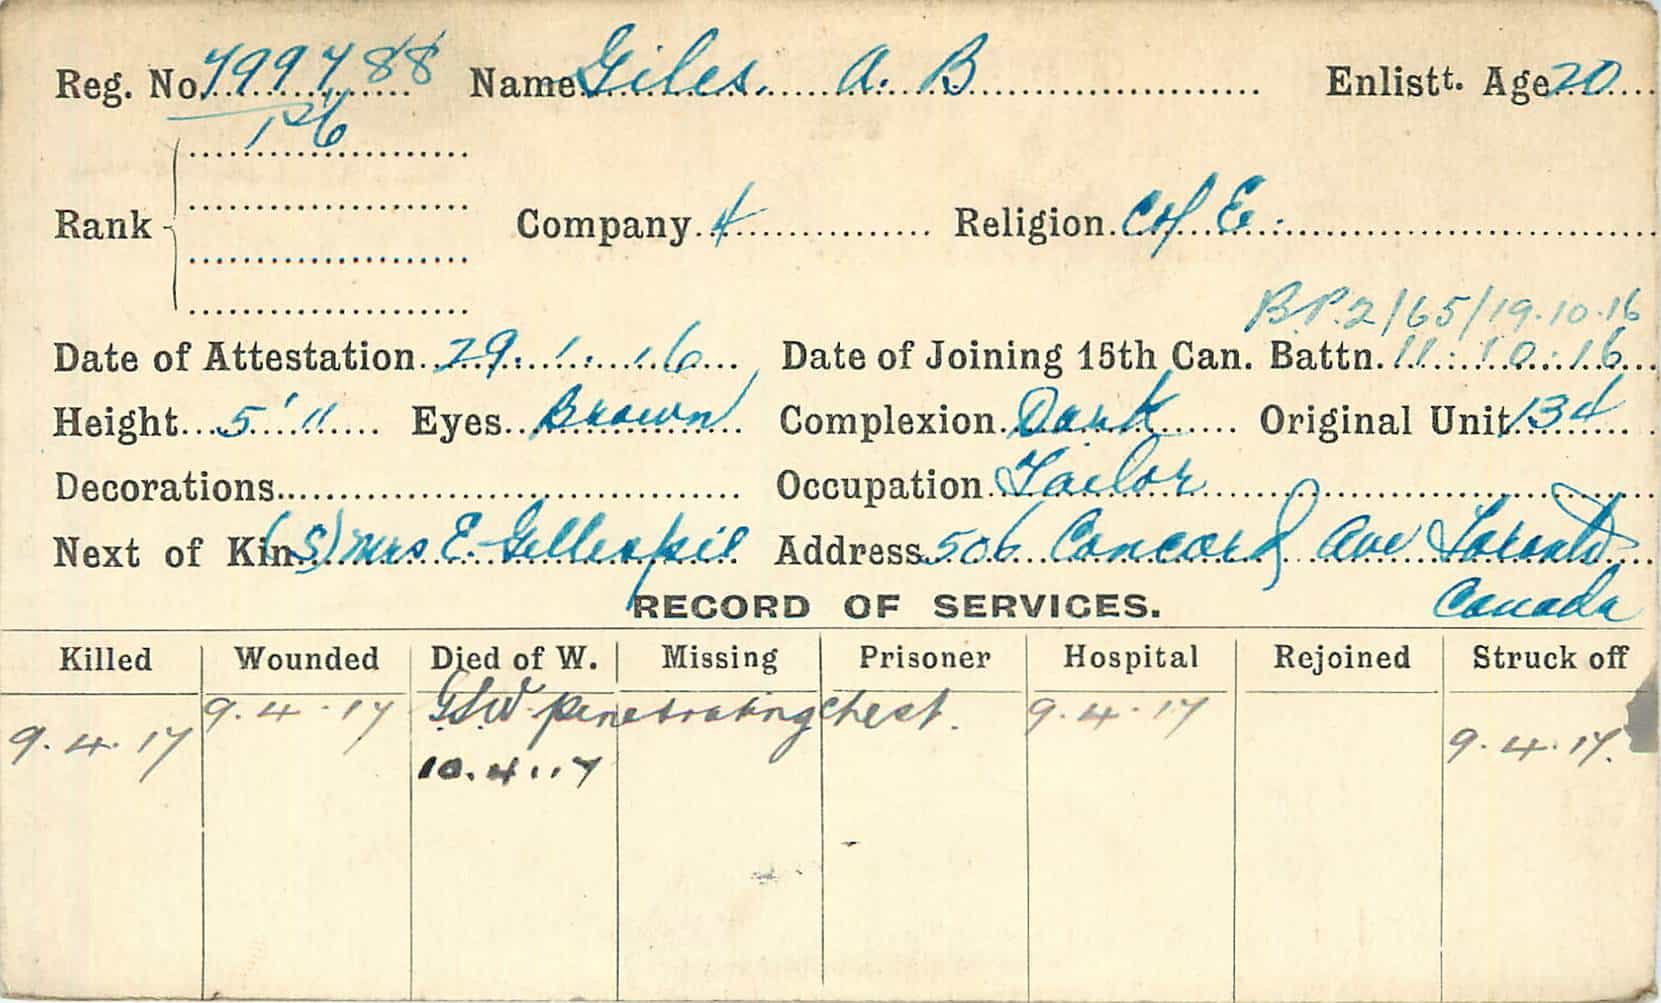 Reg. No. 799788 Name Giles. A. B Enlistt. Age 20
Pte
Rank Company 4 Religion C of E.
B.P. 2/65/19.10.16
Date of Attestation 29.1.16 Date of Joining 15th Can. Battn. 11.10.16
Height 5' 11 Eyes Brown Complexion Dark Original Unit 134
Decorations Occupation Tailor
Next of Kin (S) Mrs E. Gillespie Address 506 Concord Ave Toronto
Canada
RECORD OF SERVICES.
Killed Wounded Died of W. Missing Prisoner Hospital Rejoined Struck off
9.4.17 GSW penetrating chest. 9.4.17
9.4.17 9.4.17.
10.4.17